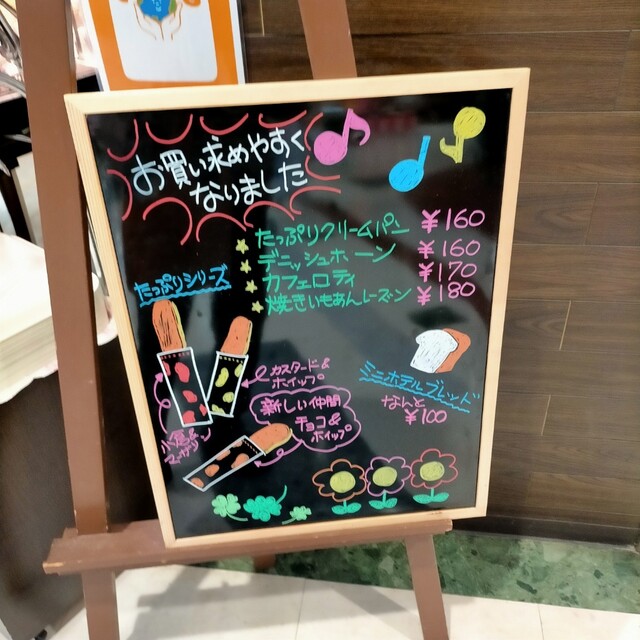 お買い求めやすく
なりました
たっぷりクリームパン ¥160
デニッシュホーン ¥160
カフェロティ ¥170
焼きいもあんレーズン ¥180
たっぷりシリーズ
カスタード&
ホイップ
新しい仲間
チョコ&
ホイップ
小倉&
マーガリン
ミニホテルブレッド
なんと
¥100